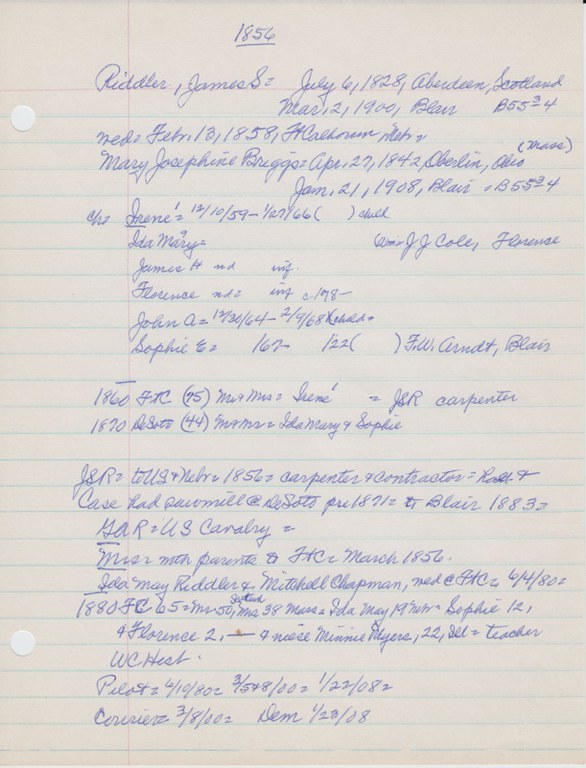 1856
Riddler, James S = July 6, 1828, Aberdeen, Scotland
Mar. 2, 1900, Blair B55 3-4
wed = Febr. 13, 1858, Ft Calhoun Nebr =
(Mass)
Mary Josephine Briggs = Apr. 27, 1842, Oberlin, Ohio
Jan. 21, 1908, Blair = B55 3-4
ch= Irené = 12/10/59 - 1/27/66 ( ) child
Ida Mary = J J Cole, Florence
James H nd inf.
Florence nd = inf c1/78 -
John A = 12/30/64 - 2/9/68 child =
Sophie E = /67 - /22 ( ) F.W. Arndt, Blair
1860 FtC (75) Mr & Mrs = Irené = JSR carpenter
1870 DeSoto (44) Mr & Mrs = Ida Mary & Sophie
JSR = to US & Nebr = 1856 = carpenter & contractor = &
Case had sawmill @ DeSoto pre 1871 = to Blair 1883 =
GAR = US Cavalry =
Mrs = with parents to FtC = March 1856.
Ida May Riddler & Mitchell Chapman, wed @ FtC = 6/4/80 =
1880 FC 65 = Mr 50, Scotland, Mrs 38 Mass = Ida May 19 Nebr = Sophie 12,
& Florence 2, — & niese Minnie Myers, 22, Ill = teacher
WCHist.
Pilot = 6/10/80 = 3/5&8/00 = 1/22/08 =
Courier = 3/8/00 = Dem 1/23/08